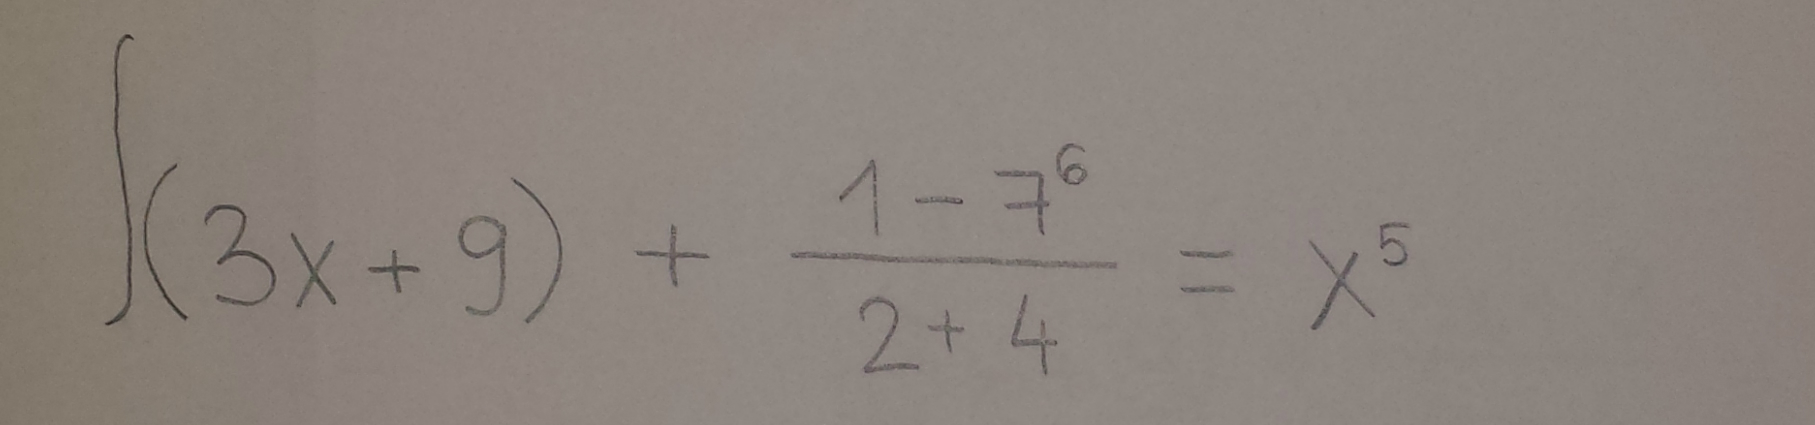 ∫(3x+9) + \frac{1-7^6}{2+4} = x^5